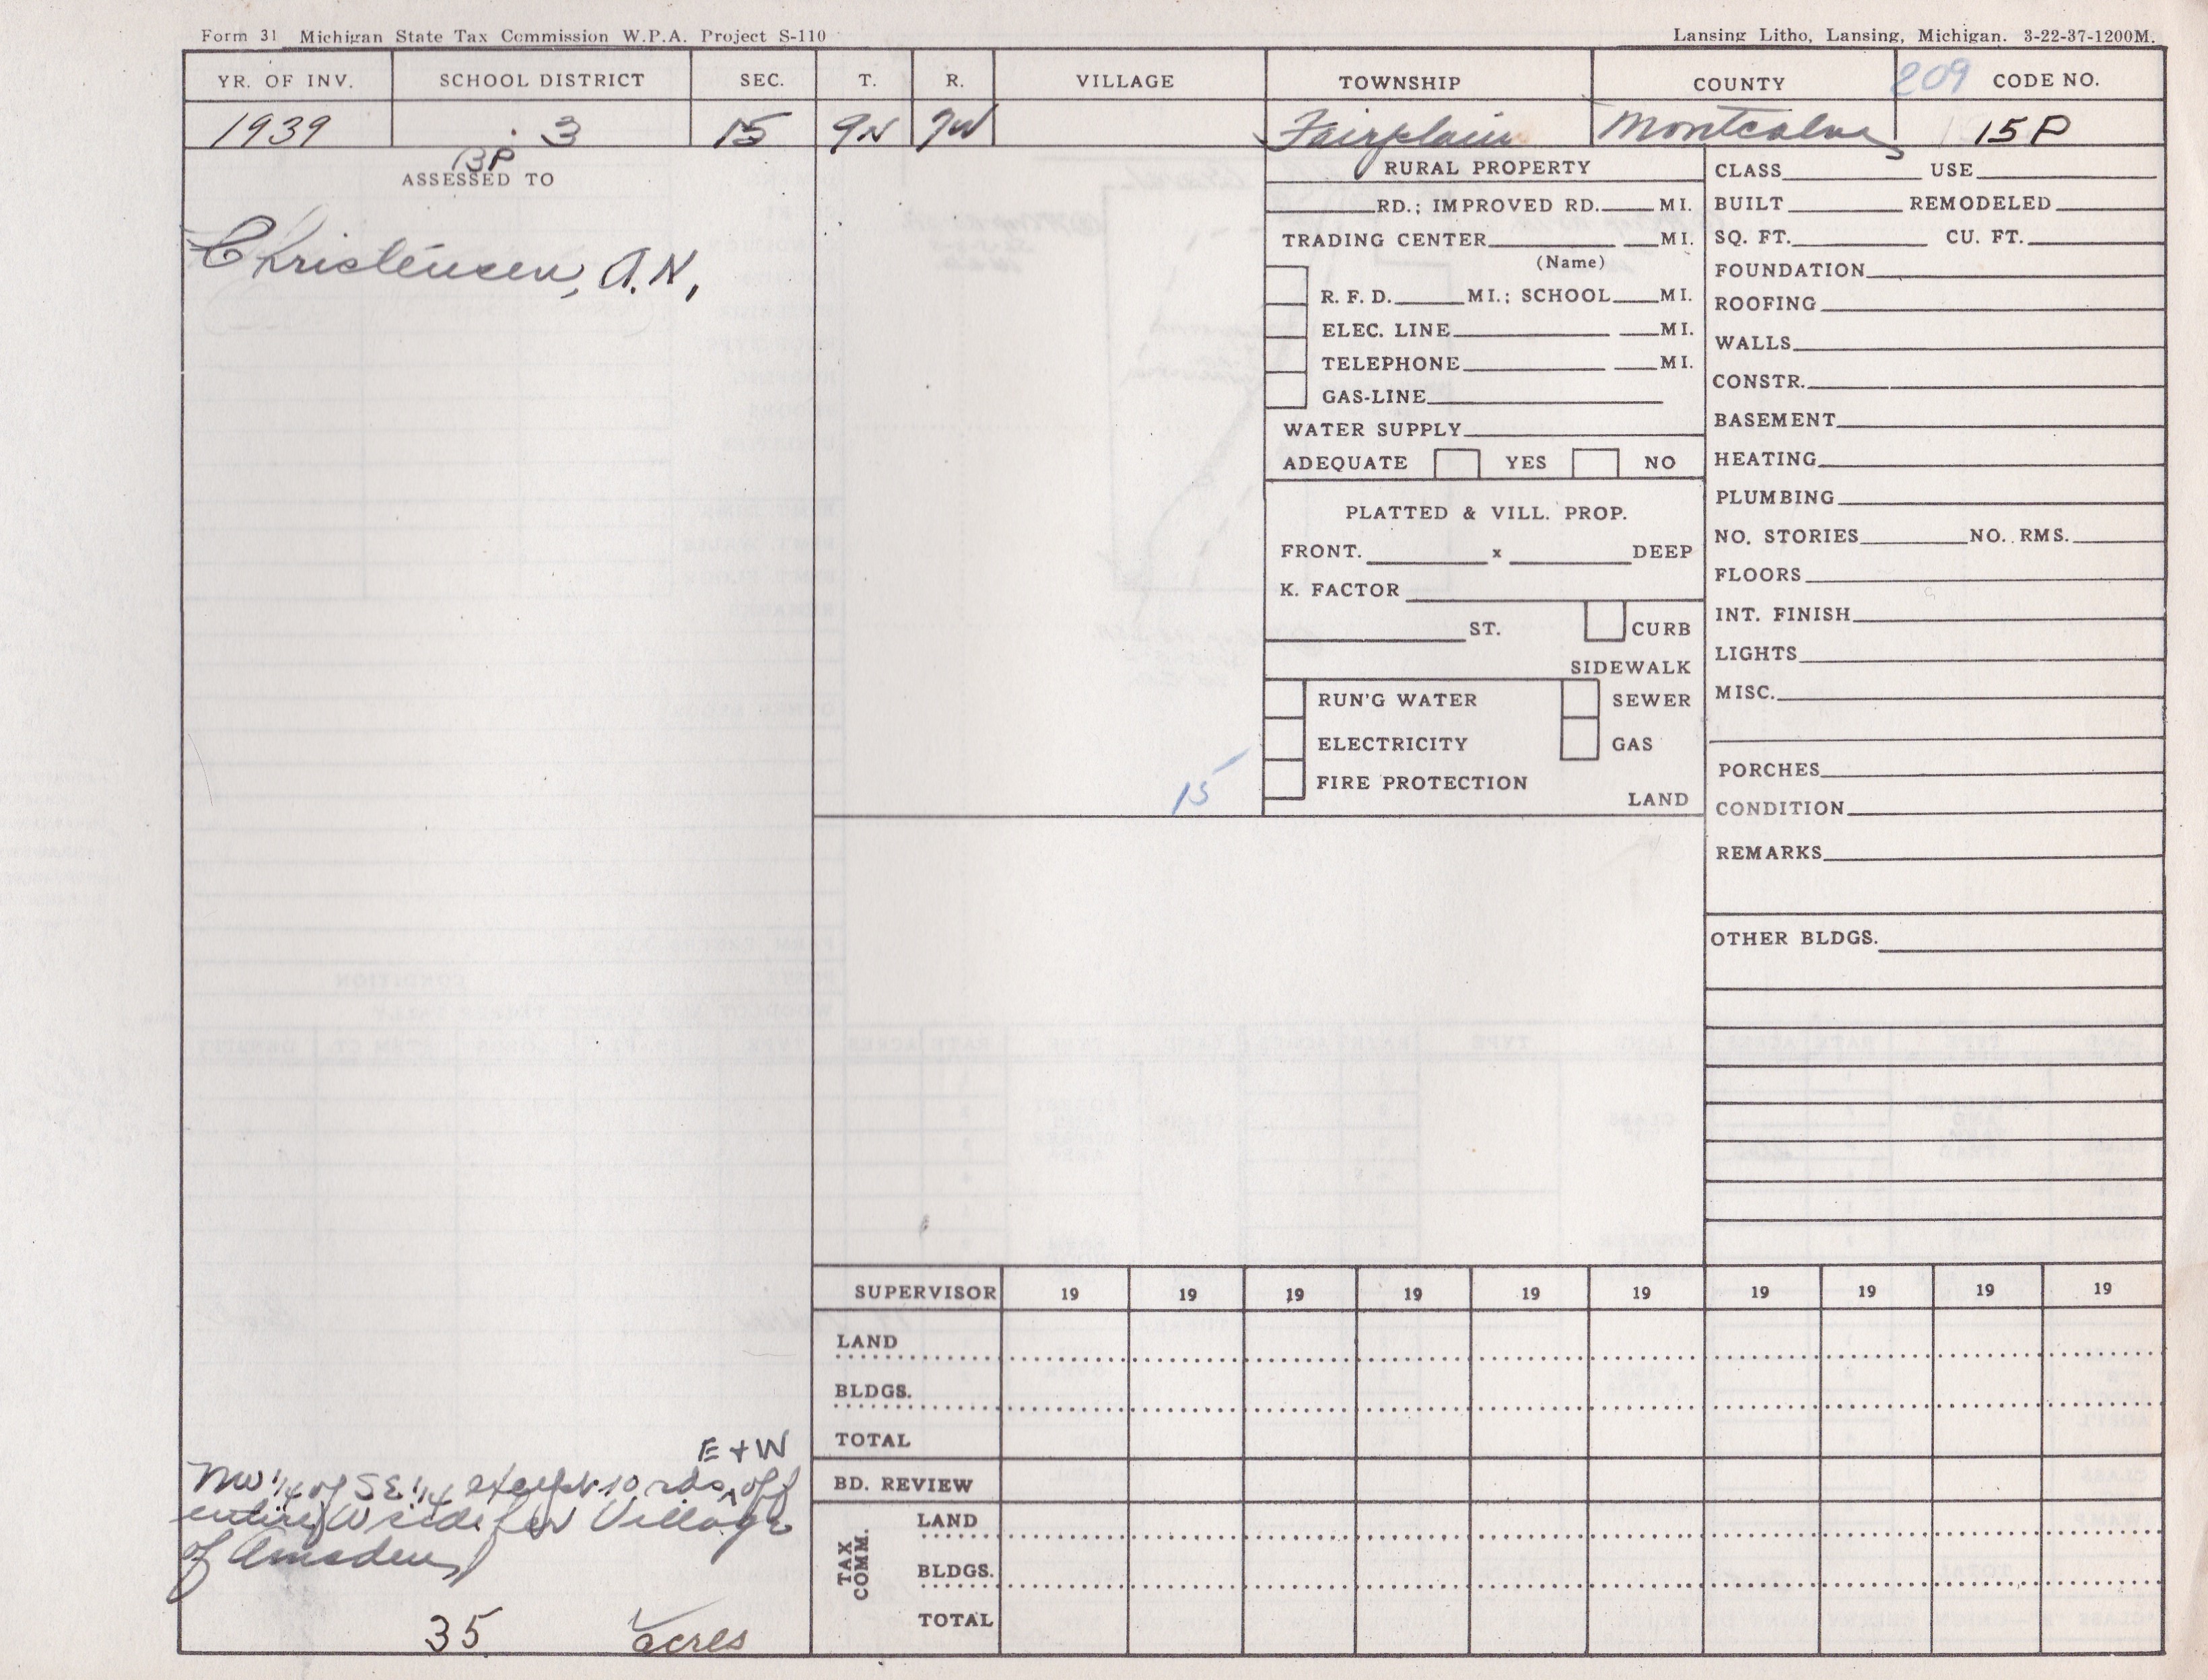 Form 31 Michigan State Tax Commission W.P.A. Project S-110
Lansing Litho, Lansing, Michigan. 3-22-37-1200M.
YR. OF INV. SCHOOL DISTRICT SEC. T. R. VILLAGE TOWNSHIP COUNTY 209 CODE NO.
1939 3 15 9N 7W Fairplain Montcalm 15P
13P
ASSESSED TO
Christensen, A.N.
RURAL PROPERTY
RD.; IMPROVED RD. MI.
TRADING CENTER MI.
(Name)
R. F. D. MI.; SCHOOL MI.
ELEC. LINE MI.
TELEPHONE MI.
GAS-LINE
WATER SUPPLY
ADEQUATE YES NO
PLATTED & VILL. PROP.
FRONT. x DEEP
K. FACTOR
ST. CURB
SIDEWALK
RUN'G WATER SEWER
ELECTRICITY GAS
FIRE PROTECTION
LAND
15
CLASS USE
BUILT REMODELED
SQ. FT. CU. FT.
FOUNDATION
ROOFING
WALLS
CONSTR.
BASEMENT
HEATING
PLUMBING
NO. STORIES NO. RMS.
FLOORS
INT. FINISH
LIGHTS
MISC.
PORCHES
CONDITION
REMARKS
OTHER BLDGS.
SUPERVISOR 19 19 19 19 19 19 19 19 19 19
LAND
BLDGS.
TOTAL
BD. REVIEW
TAX COMM.
LAND
BLDGS.
TOTAL
E + W
NW 1/4 of SE 1/4 except 10 rds off
entire W side for Village
of Amsden
35 acres